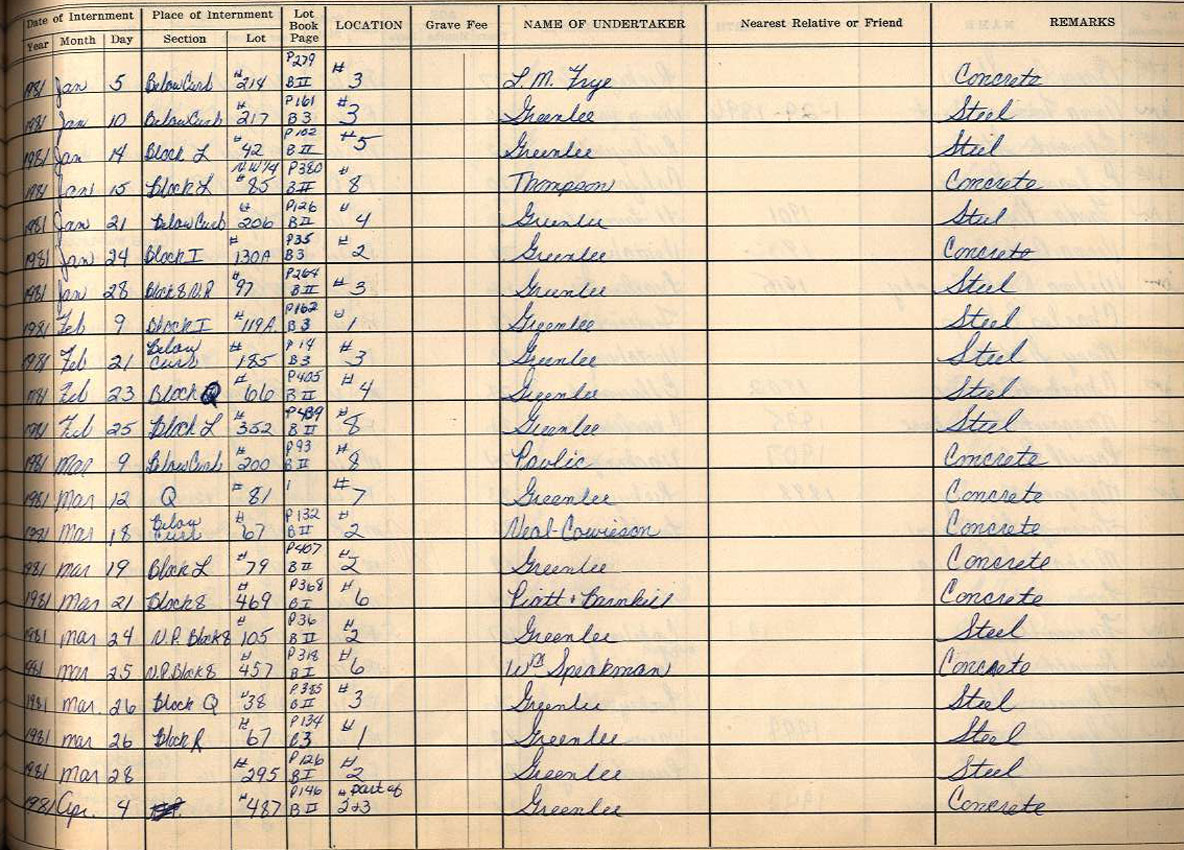 Date of Internment Place of Internment Lot Book Page LOCATION Grave Fee NAME OF UNDERTAKER Nearest Relative or Friend REMARKS
Year Month Day Section Lot
1981 Jan 5 Below Curb #214 P279 BII #3 L. M. Frye Concrete
1981 Jan 10 Below Curb #217 P161 B3 #3 Greenlee Steel
1981 Jan 14 Block L #42 P102 BII #5 Greenlee Steel
1981 Jan 15 Block L NW 1/4 #85 P380 BII #8 Thompson Concrete
1981 Jan 21 Below Curb #206 P126 BII #4 Greenlee Steel
1981 Jan 24 Block I #130A P35 B3 #2 Greenlee Concrete
1981 Jan 28 Block 8 N.P. #97 P264 BII #3 Greenlee Steel
1981 Feb 9 Block I #119A P162 B3 #1 Greenlee Steel
1981 Feb 21 Below Curb #185 P14 B3 #3 Greenlee Steel
1981 Feb 23 Block Q #66 P405 BII #4 Greenlee Steel
1981 Feb 25 Block L #352 P439 BII #8 Greenlee Steel
1981 Mar 9 Below Curb #200 P93 BII #8 Pavlic Concrete
1981 Mar 12 Q #81 #7 Greenlee Concrete
1981 Mar 18 Below Curb #67 P132 BII #2 Neal-Cowieson Concrete
1981 Mar 19 Block L #79 P407 BII #2 Greenlee Concrete
1981 Mar 21 Block 8 #469 P368 BI #6 Piatt + Barnhill Concrete
1981 Mar 24 N.P. Block 8 #105 P36 BII #2 Greenlee Steel
1981 Mar 25 N.P. Block 8 #457 P318 BI #6 Wm Speakman Concrete
1981 Mar. 26 Block Q #38 P385 BII #3 Greenlee Steel
1981 Mar 26 Block R #67 P134 B3 #1 Greenlee Steel
1981 Mar 28 #295 P126 BI #2 Greenlee Steel
1981 Apr. 4 #487 P146 BII # part of 2+3 Greenlee Concrete